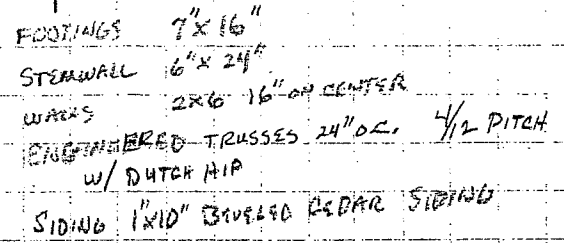 FOOTINGS 7"x 16"
STEMWALL 6"x 24"
WALLS 2x6 16" ON CENTER
ENGINEERED TRUSSES 24" O.C. 4/12 PITCH
W/ DUTCH HIP
SIDING 1"x10" BEVELED CEDAR SIDING